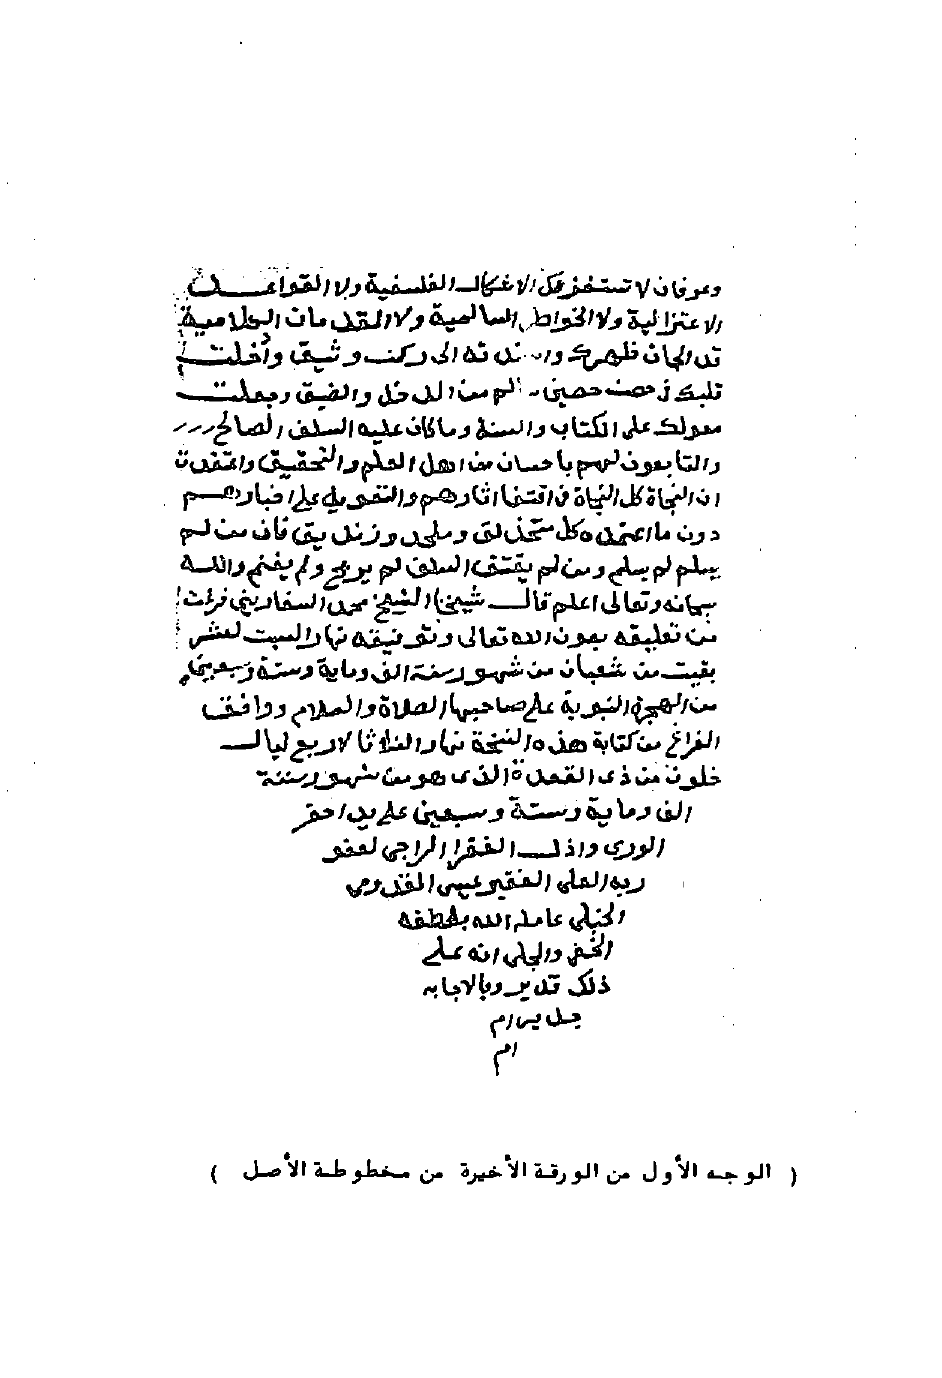 وعرفان لا تستفزفك الاشكالـ الفلسفية ولا القواعـد
الاعتزالية ولا الخواطر السالمية ولا المقدمات الكلامية
قد الجات ظهرك واسندته الى ركن وثيق وأدخلت
قلبك في حصن حصين سالم من الدخل والضيق وجعلت
معولك على الكتاب والسنة وما كان عليه السلف الصالح
والتابعون لهم باحسان من اهل العلم والتحقيق واعتقدت
ان النجاة كل النجاة في اقتفا اثارهم والتعويل على اخبارهم
دون ما اعتمده كل متحذلق وملحد وزنديق فان من لم
يسلم لم يسلم ومن لم يقتف السلف لم يربح ولم يغنم والله
سبحانه وتعالى اعلم قالـ شيخنا الشيخ محمد السفاريني فرغت
من تعليقه بعون الله تعالى وتوفيقه نهار السبت لعشر
بقيت من شعبان من شهور سنة الف وماية وستة وسبعين
من الهجرة النبوية على صاحبها الصلاة والسلام ووافق
الفراغ من كتابة هذه النسخة نهار الثلاثا لاربع ليالـ
خلون من ذي القعدة الذي هو من شهور سنة
الف وماية وستة وسبعين على يد احقر
الورى واذلـ الفقرا الراجي لعفو
ربه العلي الفقير عيسى القدومي
الحنبلي عامله الله بلطفه
الخفي والجلي انه على
ذلك قدير وبالاجابه
جدير ام
ام
( الوجه الأول من الورقة الأخيرة من مخطوطة الأصل )